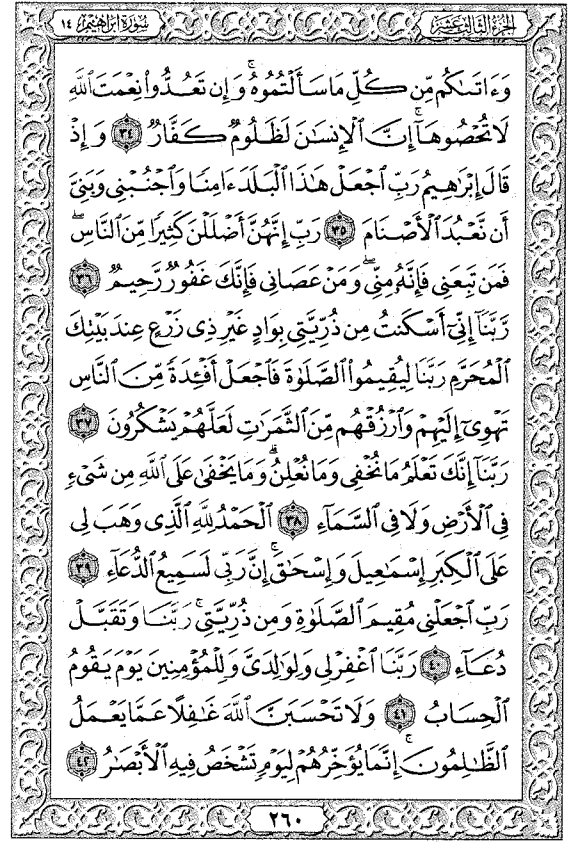 سُورَةُ إِبْرَاهِيمَ ١٤
الجُزْءُ الثَّالِثَ عَشَرَ
وَءَاتَىٰكُم مِّن كُلِّ مَا سَأَلْتُمُوهُ ۚ وَإِن تَعُدُّوا۟ نِعْمَتَ ٱللَّهِ
لَا تُحْصُوهَآ ۗ إِنَّ ٱلْإِنسَٰنَ لَظَلُومٌ كَفَّارٌ ٣٤ وَإِذْ
قَالَ إِبْرَٰهِيمُ رَبِّ ٱجْعَلْ هَٰذَا ٱلْبَلَدَ ءَامِنًا وَٱجْنُبْنِى وَبَنِىَّ
أَن نَّعْبُدَ ٱلْأَصْنَامَ ٣٥ رَبِّ إِنَّهُنَّ أَضْلَلْنَ كَثِيرًا مِّنَ ٱلنَّاسِ ۖ
فَمَن تَبِعَنِى فَإِنَّهُۥ مِنِّى ۖ وَمَنْ عَصَانِى فَإِنَّكَ غَفُورٌ رَّحِيمٌ ٣٦
رَّبَّنَآ إِنِّىٓ أَسْكَنتُ مِن ذُرِّيَّتِى بِوَادٍ غَيْرِ ذِى زَرْعٍ عِندَ بَيْتِكَ
ٱلْمُحَرَّمِ رَبَّنَا لِيُقِيمُوا۟ ٱلصَّلَوٰةَ فَٱجْعَلْ أَفْـِٔدَةً مِّنَ ٱلنَّاسِ
تَهْوِىٓ إِلَيْهِمْ وَٱرْزُقْهُم مِّنَ ٱلثَّمَرَٰتِ لَعَلَّهُمْ يَشْكُرُونَ ٣٧
رَبَّنَآ إِنَّكَ تَعْلَمُ مَا نُخْفِى وَمَا نُعْلِنُ ۗ وَمَا يَخْفَىٰ عَلَى ٱللَّهِ مِن شَىْءٍ
فِى ٱلْأَرْضِ وَلَا فِى ٱلسَّمَآءِ ٣٨ ٱلْحَمْدُ لِلَّهِ ٱلَّذِى وَهَبَ لِى
عَلَى ٱلْكِبَرِ إِسْمَٰعِيلَ وَإِسْحَٰقَ ۚ إِنَّ رَبِّى لَسَمِيعُ ٱلدُّعَآءِ ٣٩
رَبِّ ٱجْعَلْنِى مُقِيمَ ٱلصَّلَوٰةِ وَمِن ذُرِّيَّتِى ۚ رَبَّنَا وَتَقَبَّلْ
دُعَآءِ ٤٠ رَبَّنَا ٱغْفِرْ لِى وَلِوَٰلِدَىَّ وَلِلْمُؤْمِنِينَ يَوْمَ يَقُومُ
ٱلْحِسَابُ ٤١ وَلَا تَحْسَبَنَّ ٱللَّهَ غَٰفِلًا عَمَّا يَعْمَلُ
ٱلظَّٰلِمُونَ ۚ إِنَّمَا يُؤَخِّرُهُمْ لِيَوْمٍ تَشْخَصُ فِيهِ ٱلْأَبْصَٰرُ ٤٢
٢٦٠